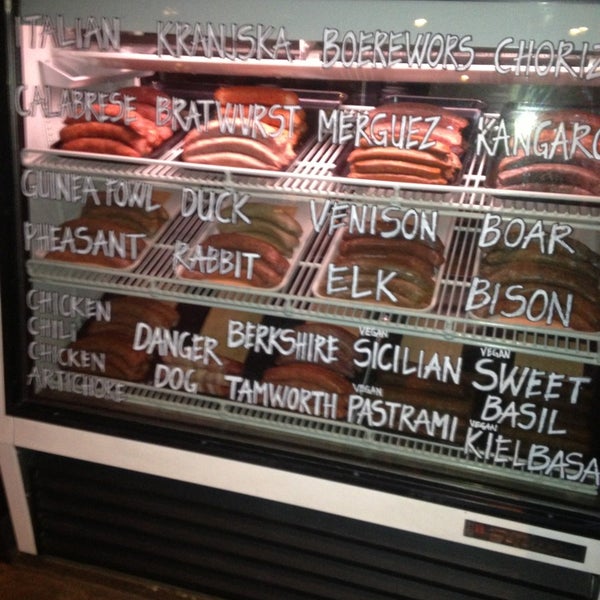 ITALIAN KRANJSKA BOEREWORS CHORIZ
CALABRESE BRATWURST MERGUEZ KANGARO
GUINEA FOWL DUCK VENISON BOAR
PHEASANT RABBIT ELK BISON
CHICKEN CHILI
CHICKEN ARTICHOKE
DANGER DOG
BERKSHIRE
TAMWORTH
VEGAN SICILIAN
VEGAN PASTRAMI
VEGAN SWEET BASIL
VEGAN KIELBASA